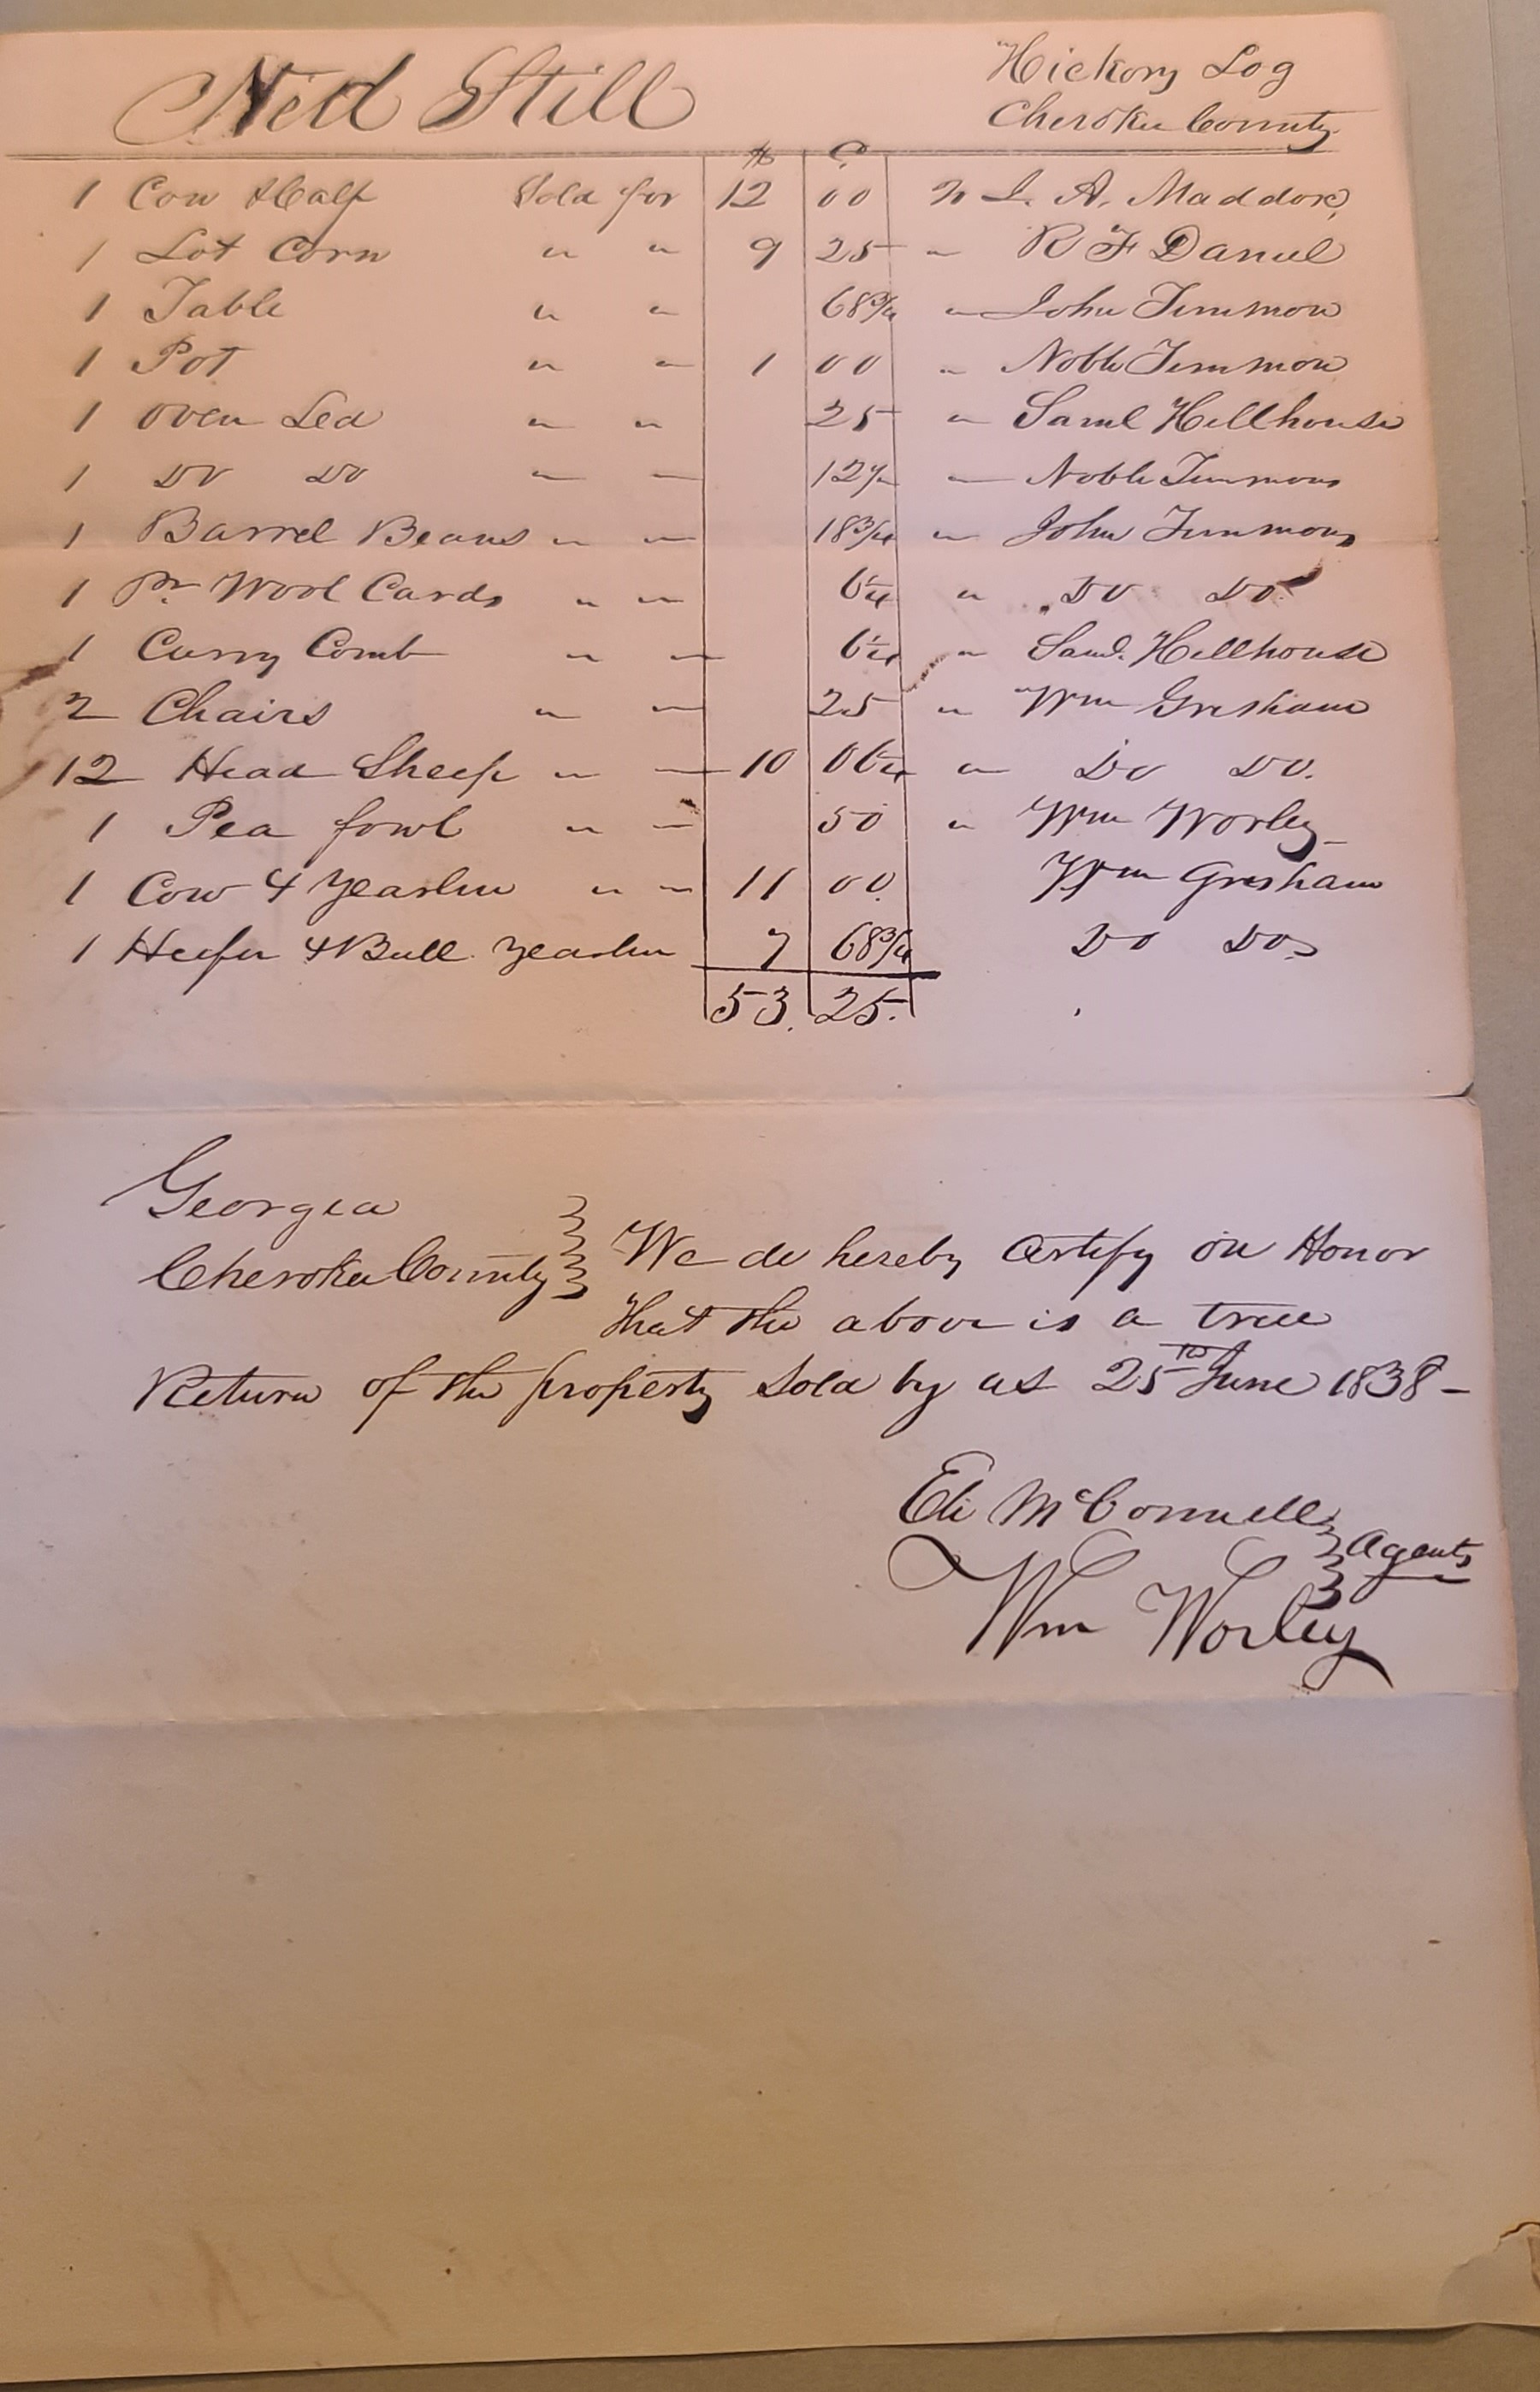 Ned Still
Hickory Log
Cherokee County
$ C
1 Cow & Calf Sold for 12 00 to L. A. Maddox,
1 Lot Corn " " 9 25 " R F Daniel
1 Table " " 68 3/4 " John Timmon
1 Pot " " 1 00 " Noble Timmon
1 Oven Led " " 25 " Saml Hillhouse
1 Do Do " " 12 1/2 " Noble Timmons
1 Barrel Beans " " 18 3/4 " John Timmons
1 Pr Wool Cards " " 6 1/4 " Do Do
1 Curry Comb " " 6 1/4 " Saml. Hillhouse
2 Chairs " " 25 " Wm Gresham
12 Head Sheep " " 10 06 1/4 " Do Do.
1 Pea fowl " " 50 " Wm Worley
1 Cow & Yearlin " " 11 00. Wm Gresham
1 Heefer & Bull Yearlin 7 68 3/4 Do Do
53. 25.
Georgia
Cherokee County We do hereby certify on Honor
that the above is a true
Return of the property sold by us 25th June 1838 -
Eli McConnell
Agents
Wm Worley